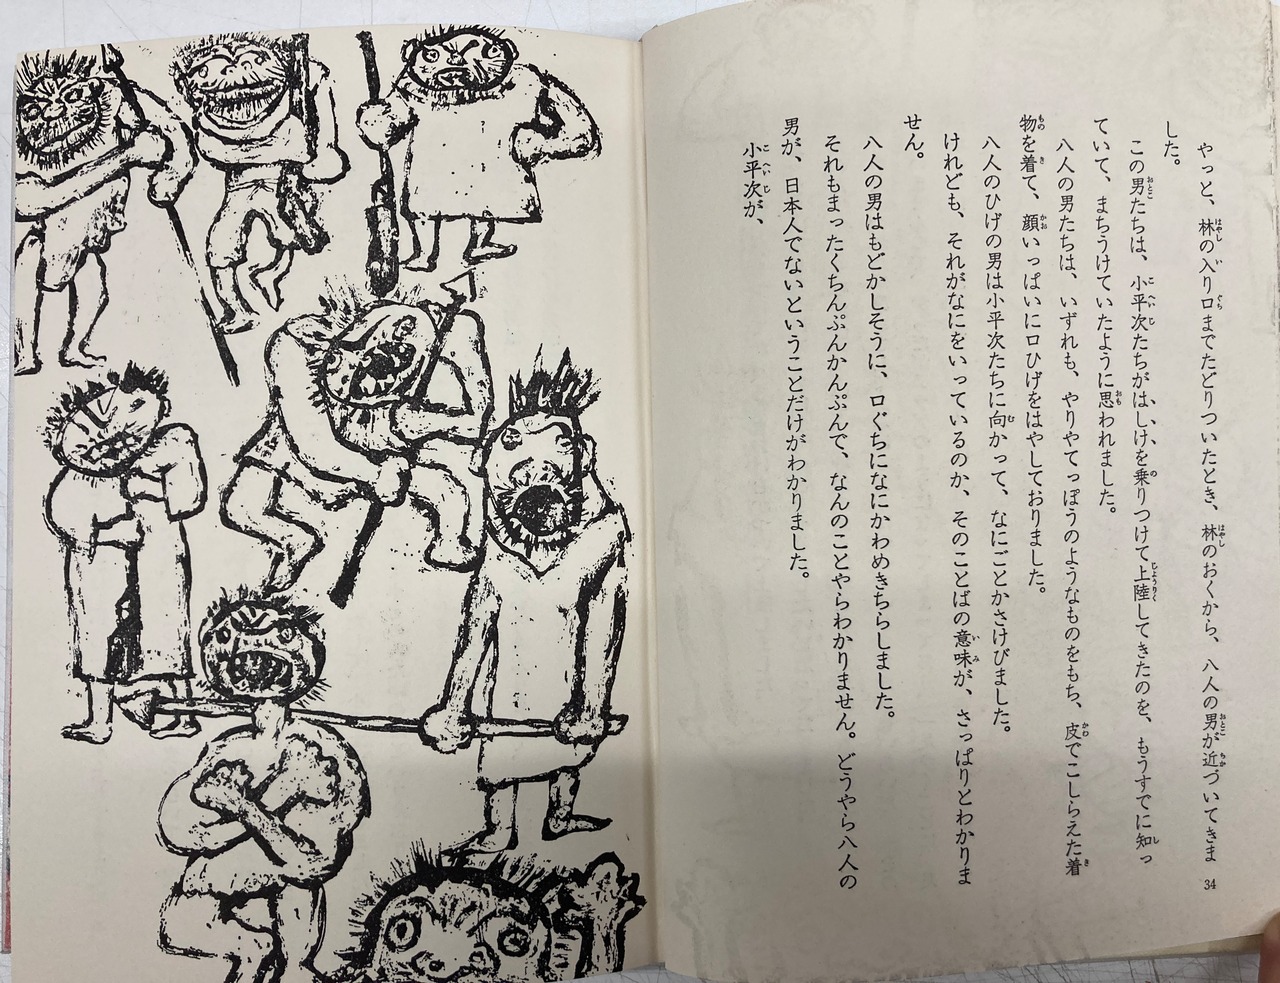 やっと、林の入り口までたどりついたとき、林のおくから、八人の男が近づいてきま
した。
この男たちは、小平次たちがはしけを乗りつけて上陸してきたのを、もうすでに知っ
ていて、まちうけていたように思われました。
八人の男たちは、いずれも、やりやてっぽうのようなものをもち、皮でこしらえた着
物を着て、顔いっぱいに口ひげをはやしておりました。
八人のひげの男は小平次たちに向かって、なにごとかさけびました。
けれども、それがなにをいっているのか、そのことばの意味が、さっぱりとわかりま
せん。
八人の男はもどかしそうに、口ぐちになにかわめきちらしました。
それもまったくちんぷんかんぷんで、なんのことやらわかりません。どうやら八人の
男が、日本人でないということだけがわかりました。
小平次が、
34